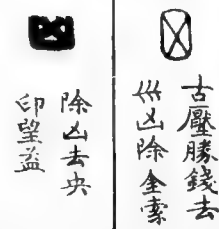 古壓勝錢去
巛凶除全索
除凶去央
印望益